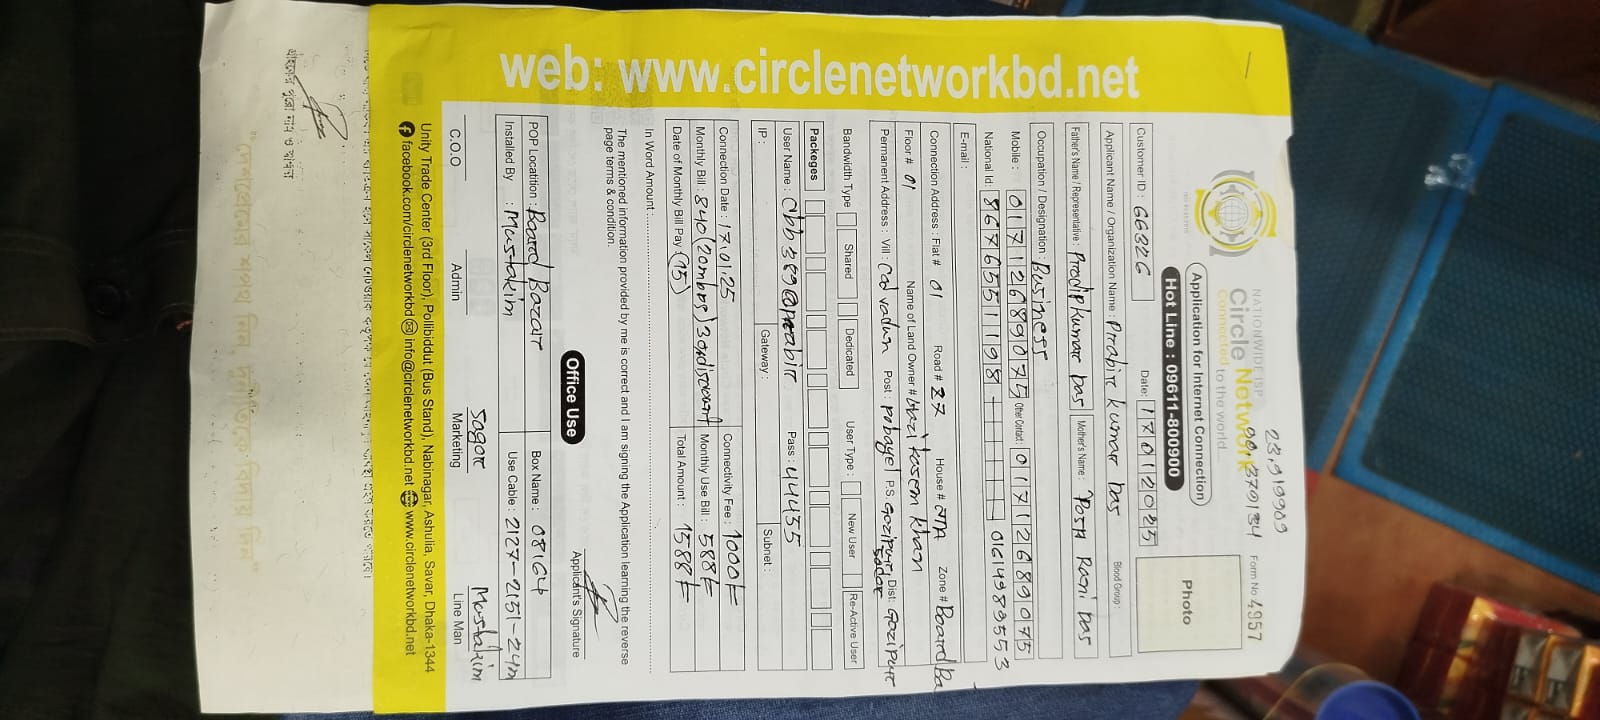 web: www.circlenetworkbd.net
NATIONWIDE ISP
Circle Network
Connected to the world
23.919909
90.379134
Form No 4957
Application for Internet Connection
Hot Line : 09611-800900
Photo
Customer ID : 66326 Date: 17012025
Applicant Name / Organization Name : Prabir kumar Das Blood Group :
Father's Name / Representative : Prodip kumar Das Mother's Name : Posh Rani Das
Occupation / Designation : Business
Mobile : 01712689075 Other Contact : 01712689075
National Id: 8676551198 01614989553
E-mail :
Connection Address : Flat # 01 Road # 27 House # Zone # Board Ba
Floor # 01 Name of Land Owner # kasem khan
Permanent Address : Vill : Post : pobayel P.S. Gozipur sador Dist: Gozipur
Bandwidth Type Shared Dedicated User Type : New User Re-Active User
Packeges
User Name : cbb389@prabir Pass : 44455
IP : Gateway : Subnet :
Connection Date : 17.01.25 Connectivity Fee : 1000৳
Monthly Bill : 840 (20mbps) 30% discount Monthly Use Bill : 588৳
Date of Monthly Bill Pay (15) Total Amount : 1588৳
In Word Amount :
The mentioned information provided by me is correct and I am signing the Application learning the reverse
page terms & condition.
Applicant's Signature
Office Use
POP Locattion : Board Bazar Box Name : 08164
Installed By : Mustakim Use Cable : 2127-2151-24m
Sogor Mustakim
C.O.O Admin Marketing Line Man
Unity Trade Center (3rd Floor), Pollibiddut (Bus Stand), Nabinagar, Ashulia, Savar, Dhaka-1344
facebook.com/circlenetworkbd info@circlenetworkbd.net www.circlenetworkbd.net